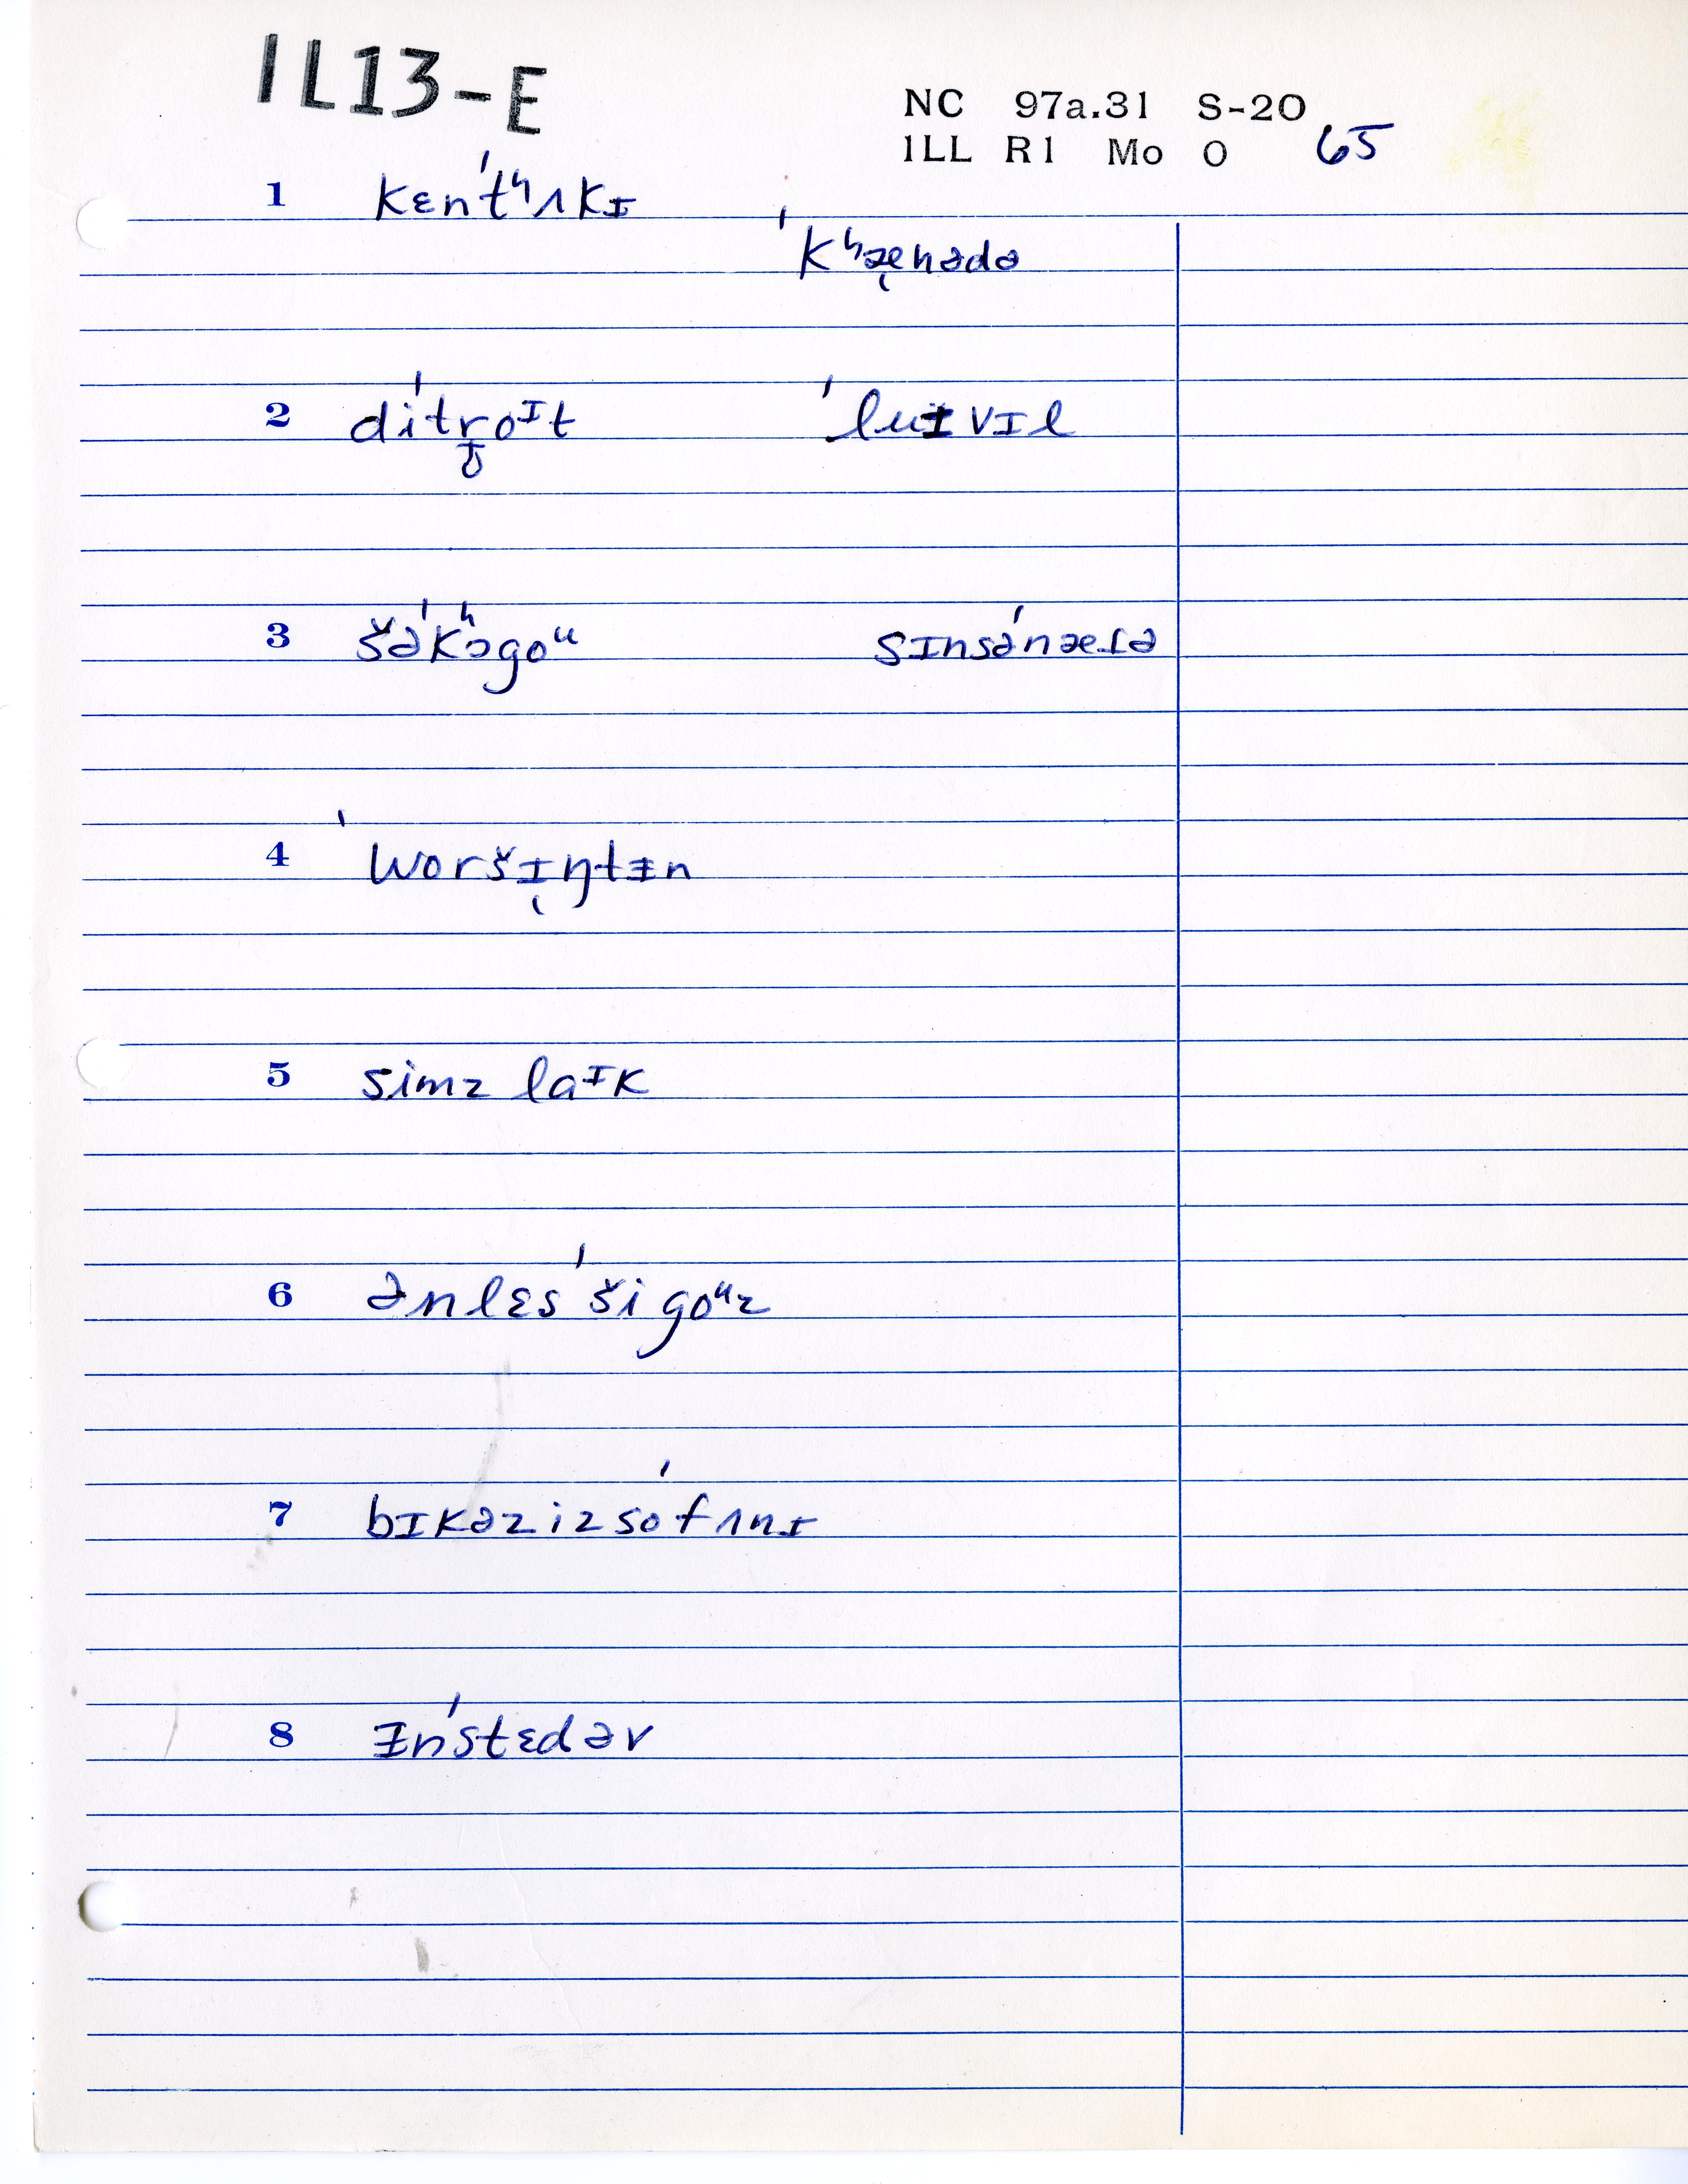 1L13-E
NC 97a.31 S-20
1LL R1 Mo 0 65
1 kɛnˈtʰʌkɪ
ˈkʰæ̨nədə
2 diˈtr̥oᴵt ˈluɪvɪl
3 šəˈkʰɔgoᵘ sɪnsəˈnæɾə
4 ˈworšɪ̨ŋtɪn
5 simz laᴵk
6 ənlɛsˈšigoᵘz
7 bɪkəzizsoˈfʌnɪ
8 ɪnˈstɛdəv